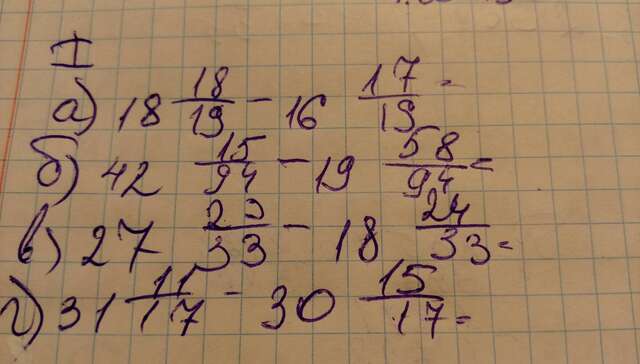 I
а) 18 18/19 - 16 17/19 =
б) 42 15/94 - 19 58/94 =
в) 27 23/33 - 18 24/33 =
г) 31 11/17 - 30 15/17 =